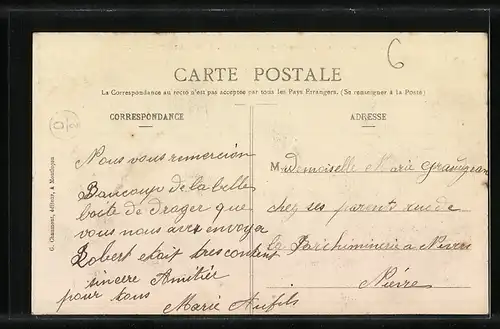 6
CARTE POSTALE
La Correspondance au recto n'est pas acceptée par tous les Pays Étrangers. (Se renseigner à la Poste)
CORRESPONDANCE
ADRESSE
G. Chaumont, éditeur, à
Nous vous remercion
Baucoup de la belle
boite de drager que
vous nous avez envoyer
Robert etait tres content
sincere Amitier
pour tous
Marie Aufils
Mademoiselle Marie Grandjean
chez ses parents rue de
la Parchiminerie a Nevers
Nièvre